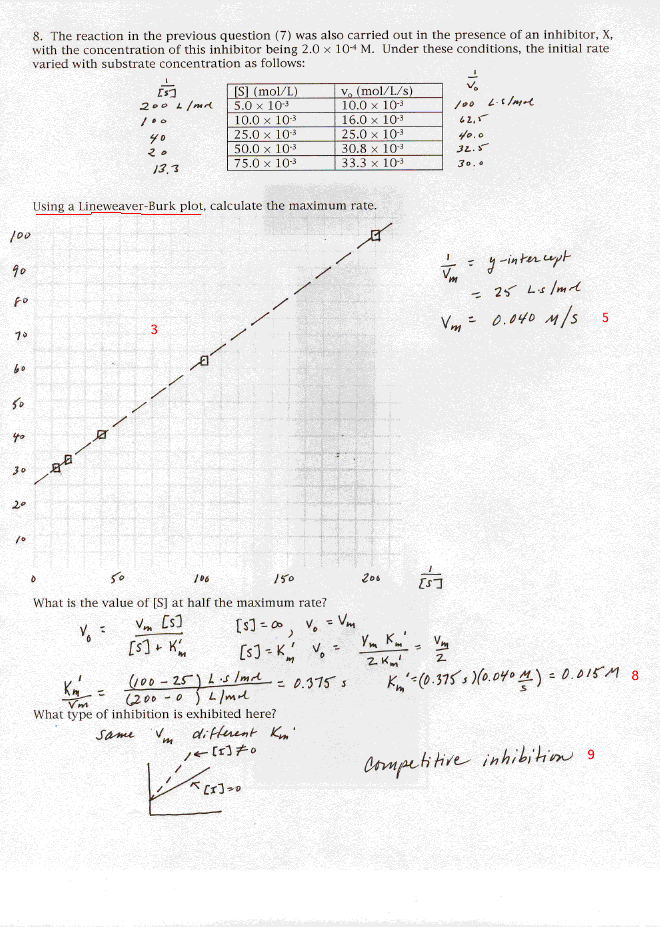 8. The reaction in the previous question (7) was also carried out in the presence of an inhibitor, X,
with the concentration of this inhibitor being 2.0 × 10⁻⁴ M. Under these conditions, the initial rate
varied with substrate concentration as follows:
1/[S] [S] (mol/L) v₀ (mol/L/s) 1/V₀
200 L/mol 5.0 × 10⁻³ 10.0 × 10⁻³ 100 L·s/mol
100 10.0 × 10⁻³ 16.0 × 10⁻³ 62.5
40 25.0 × 10⁻³ 25.0 × 10⁻³ 40.0
20 50.0 × 10⁻³ 30.8 × 10⁻³ 32.5
13.3 75.0 × 10⁻³ 33.3 × 10⁻³ 30.0
Using a Lineweaver-Burk plot, calculate the maximum rate.
100
90
80
70
60
50
40
30
20
10
3
1/Vm = y-intercept
= 25 L·s/mol
Vm = 0.040 M/s 5
0 50 100 150 200 1/[S]
What is the value of [S] at half the maximum rate?
V₀ = Vm [S] / [S] + K'm [S] = ∞, V₀ = Vm
[S] = Km' V₀ = Vm Km' / 2 Km' = Vm / 2
Km' / Vm = (100 - 25) L·s/mol / (200 - 0) L/mol = 0.375 s Km' = (0.375 s)(0.040 M/s) = 0.015 M 8
What type of inhibition is exhibited here?
same Vm different Km'
← [I] ≠ 0
[I] = 0
Competitive inhibition 9